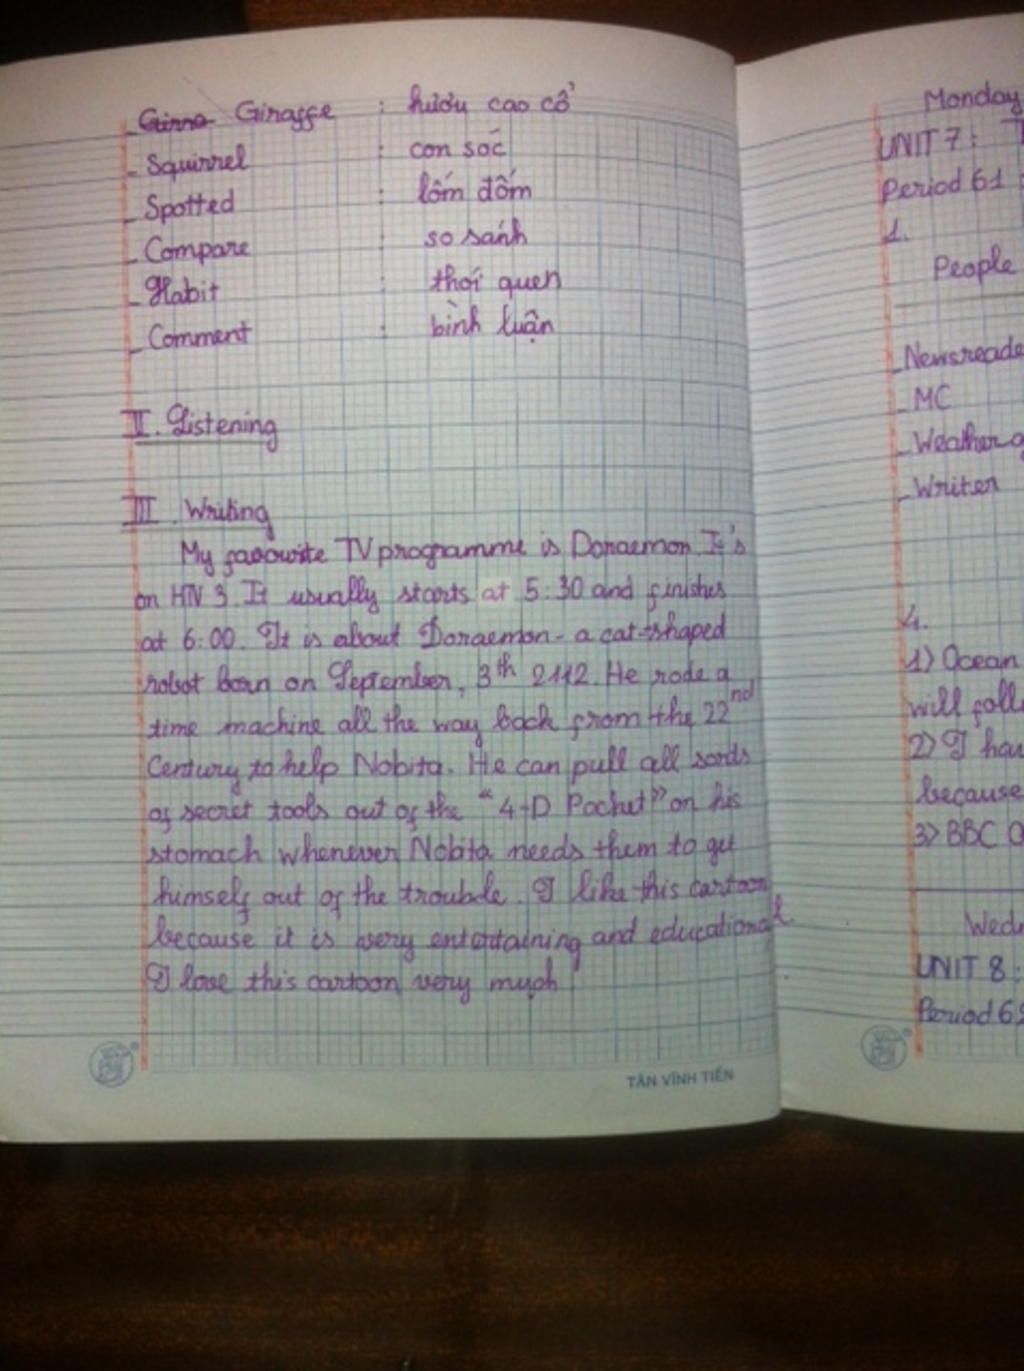 Giraffe : hươu cao cổ
_ Squirrel : con sóc
_ Spotted : lốm đốm
_ Compare : so sánh
_ Habit : thói quen
_ Comment : bình luận
II. Listening
III. Writing
My favourite TV programme is Doraemon. It's
on HTV 3. It usually starts at 5:30 and finishes
at 6:00. It is about Doraemon - a cat-shaped
robot born on September, 3th 2112. He rode a
time machine all the way back from the 22nd
Century to help Nobita. He can pull all sords
of secret tools out of the "4-D Pocket" on his
stomach whenever Nobita needs them to get
himself out of the trouble. I like this cartoon
because it is very entertaining and educational.
I love this cartoon very much!
TÂN VĨNH TIẾN
Monday
UNIT 7:
Period 61
1.
People
_ Newsreade
_ MC
_ Weather
_ Writer
4.
1) Ocean
will foll
2) I hav
because
3) BBC
Wedn
UNIT 8:
Period 6